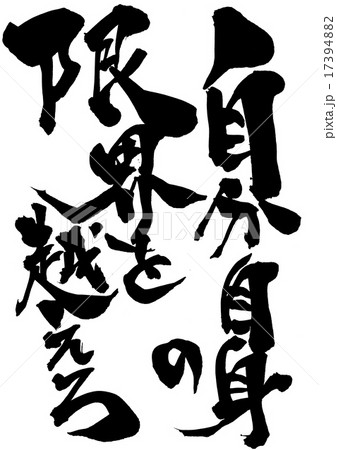 自分自身の
限界を
越えろ
pixta.jp - 17394882
PIXTA